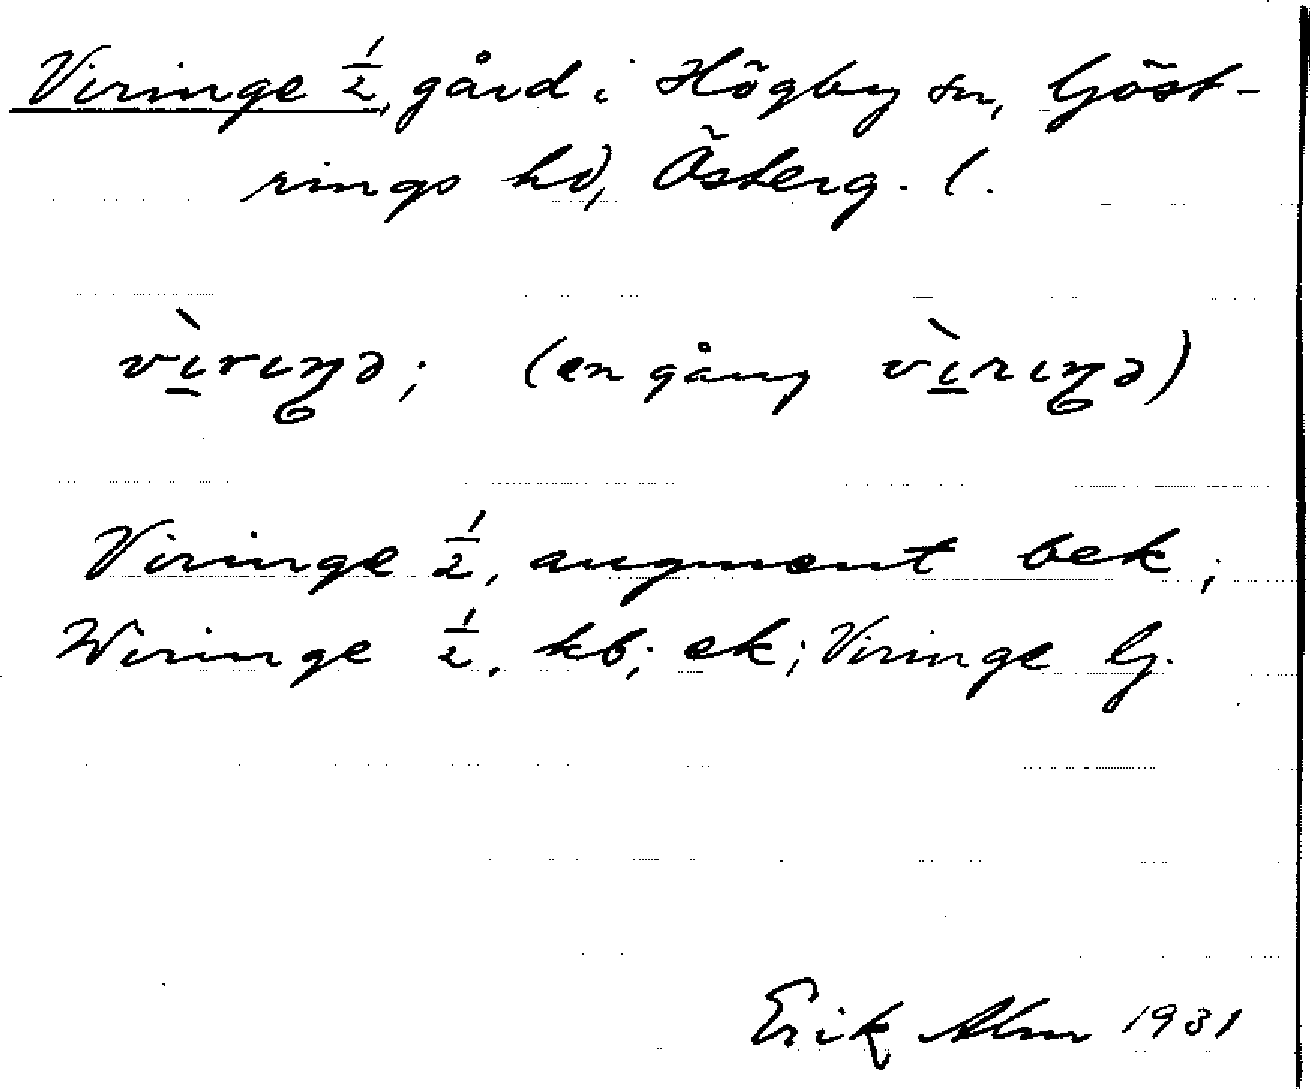 Viringe ½, gård i Högby sn, Göst-
rings hd, Österg. l.
vìrıŋə; (en gång vìrıŋə)
Viringe ½, augment bek;
Wiringe ½, kb; ek; Viringe G.
Erik Alm 1931